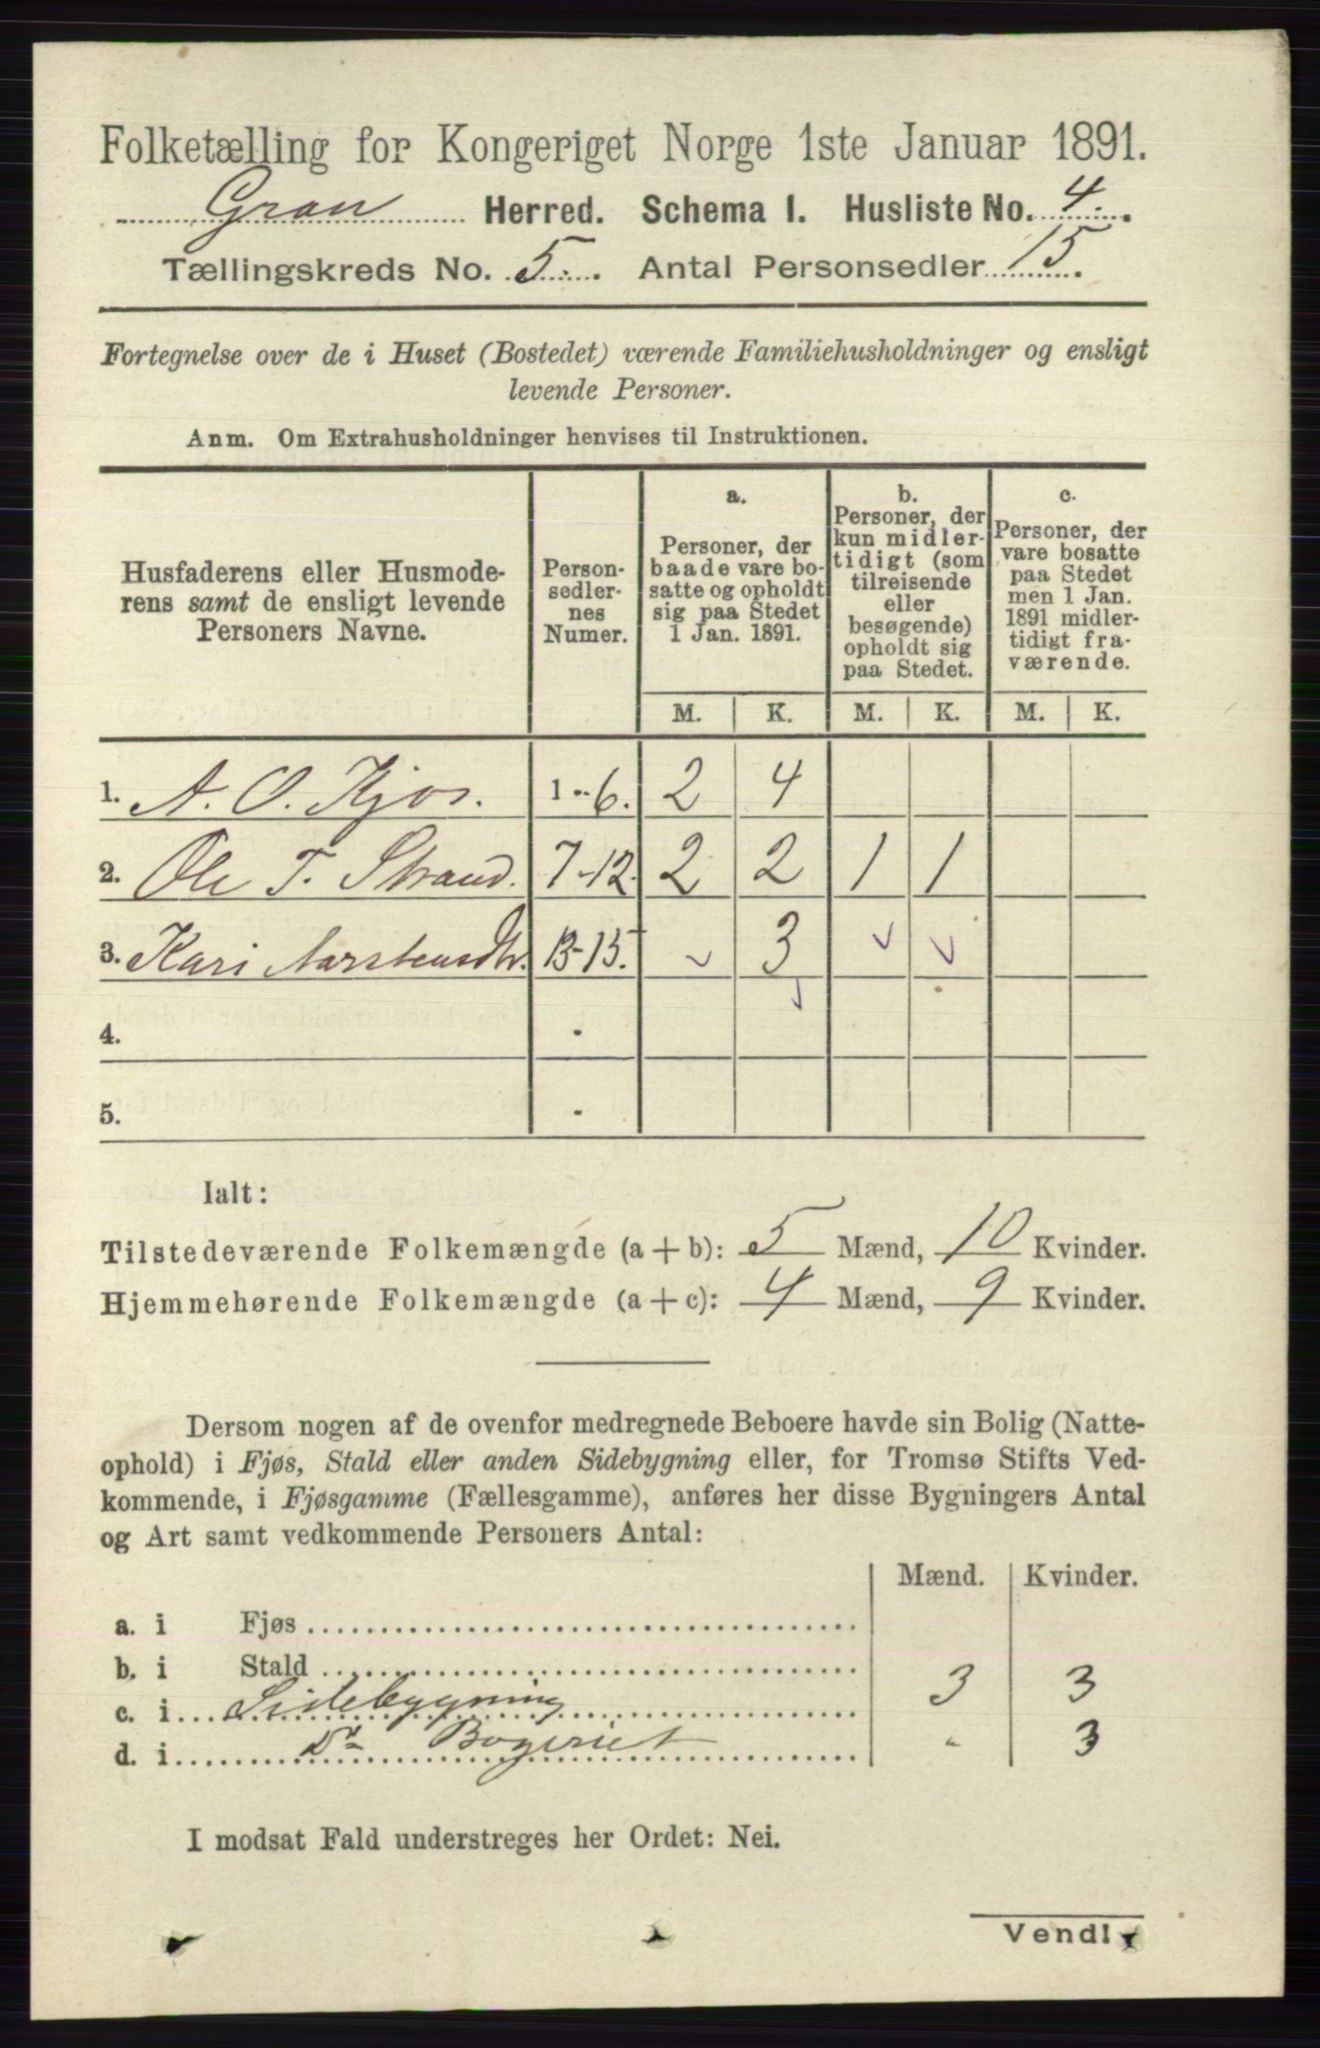 Folketælling for Kongeriget Norge 1ste Januar 1891.
Gran Herred. Schema I. Husliste No. 4.
Tællingskreds No. 5. Antal Personsedler 15.
Fortegnelse over de i Huset (Bostedet) værende Familiehusholdninger og ensligt
levende Personer.
Anm. Om Extrahusholdninger henvises til Instruktionen.
Husfaderens eller Husmode-
rens samt de ensligt levende
Personers Navne.
Person-
sedler-
nes
Numer.
a.
Personer, der
baade vare bo-
satte og opholdt
sig paa Stedet
1 Jan. 1891.
b.
Personer, der
kun midler-
tidigt (som
tilreisende
eller
besøgende)
opholdt sig
paa Stedet.
c.
Personer, der
vare bosatte
paa Stedet
men 1 Jan.
1891 midler-
tidigt fra-
værende.
M. K. M. K. M. K.
1. A. O. Kjos. 1-6. 2 4
2. Ole T. Strand. 7-12. 2 2 1 1
3. Kari Aarstensdtr. 13-15. 3
4. -
5. -
Ialt:
Tilstedeværende Folkemængde (a + b): 5 Mænd, 10 Kvinder.
Hjemmehørende Folkemængde (a + c): 4 Mænd, 9 Kvinder.
Dersom nogen af de ovenfor medregnede Beboere havde sin Bolig (Natte-
ophold) i Fjøs, Stald eller anden Sidebygning eller, for Tromsø Stifts Ved-
kommende, i Fjøsgamme (Fællesgamme), anføres her disse Bygningers Antal
og Art samt vedkommende Personers Antal:
Mænd. Kvinder.
a. i Fjøs
b. i Stald
c. i Sidebygning 3 3
d. i Do Bogeriet - 3
I modsat Fald understreges her Ordet: Nei.
Vend!